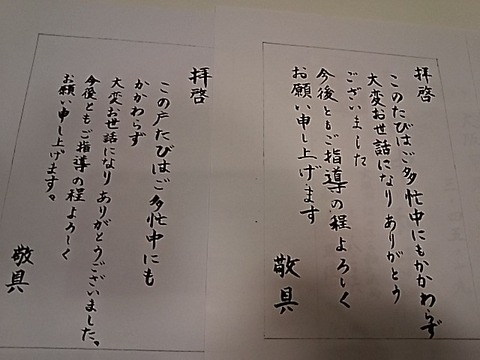 拝啓
このたびはご多忙中にもかかわらず
大変お世話になり ありがとう
ございました
今後ともご指導の程よろしく
お願い申し上げます
敬具
拝啓
この戸たびはご多忙中にも
かかわらず
大変お世話になり ありがとうございました。
今後ともご指導の程よろしく
お願い申し上げます。
敬具